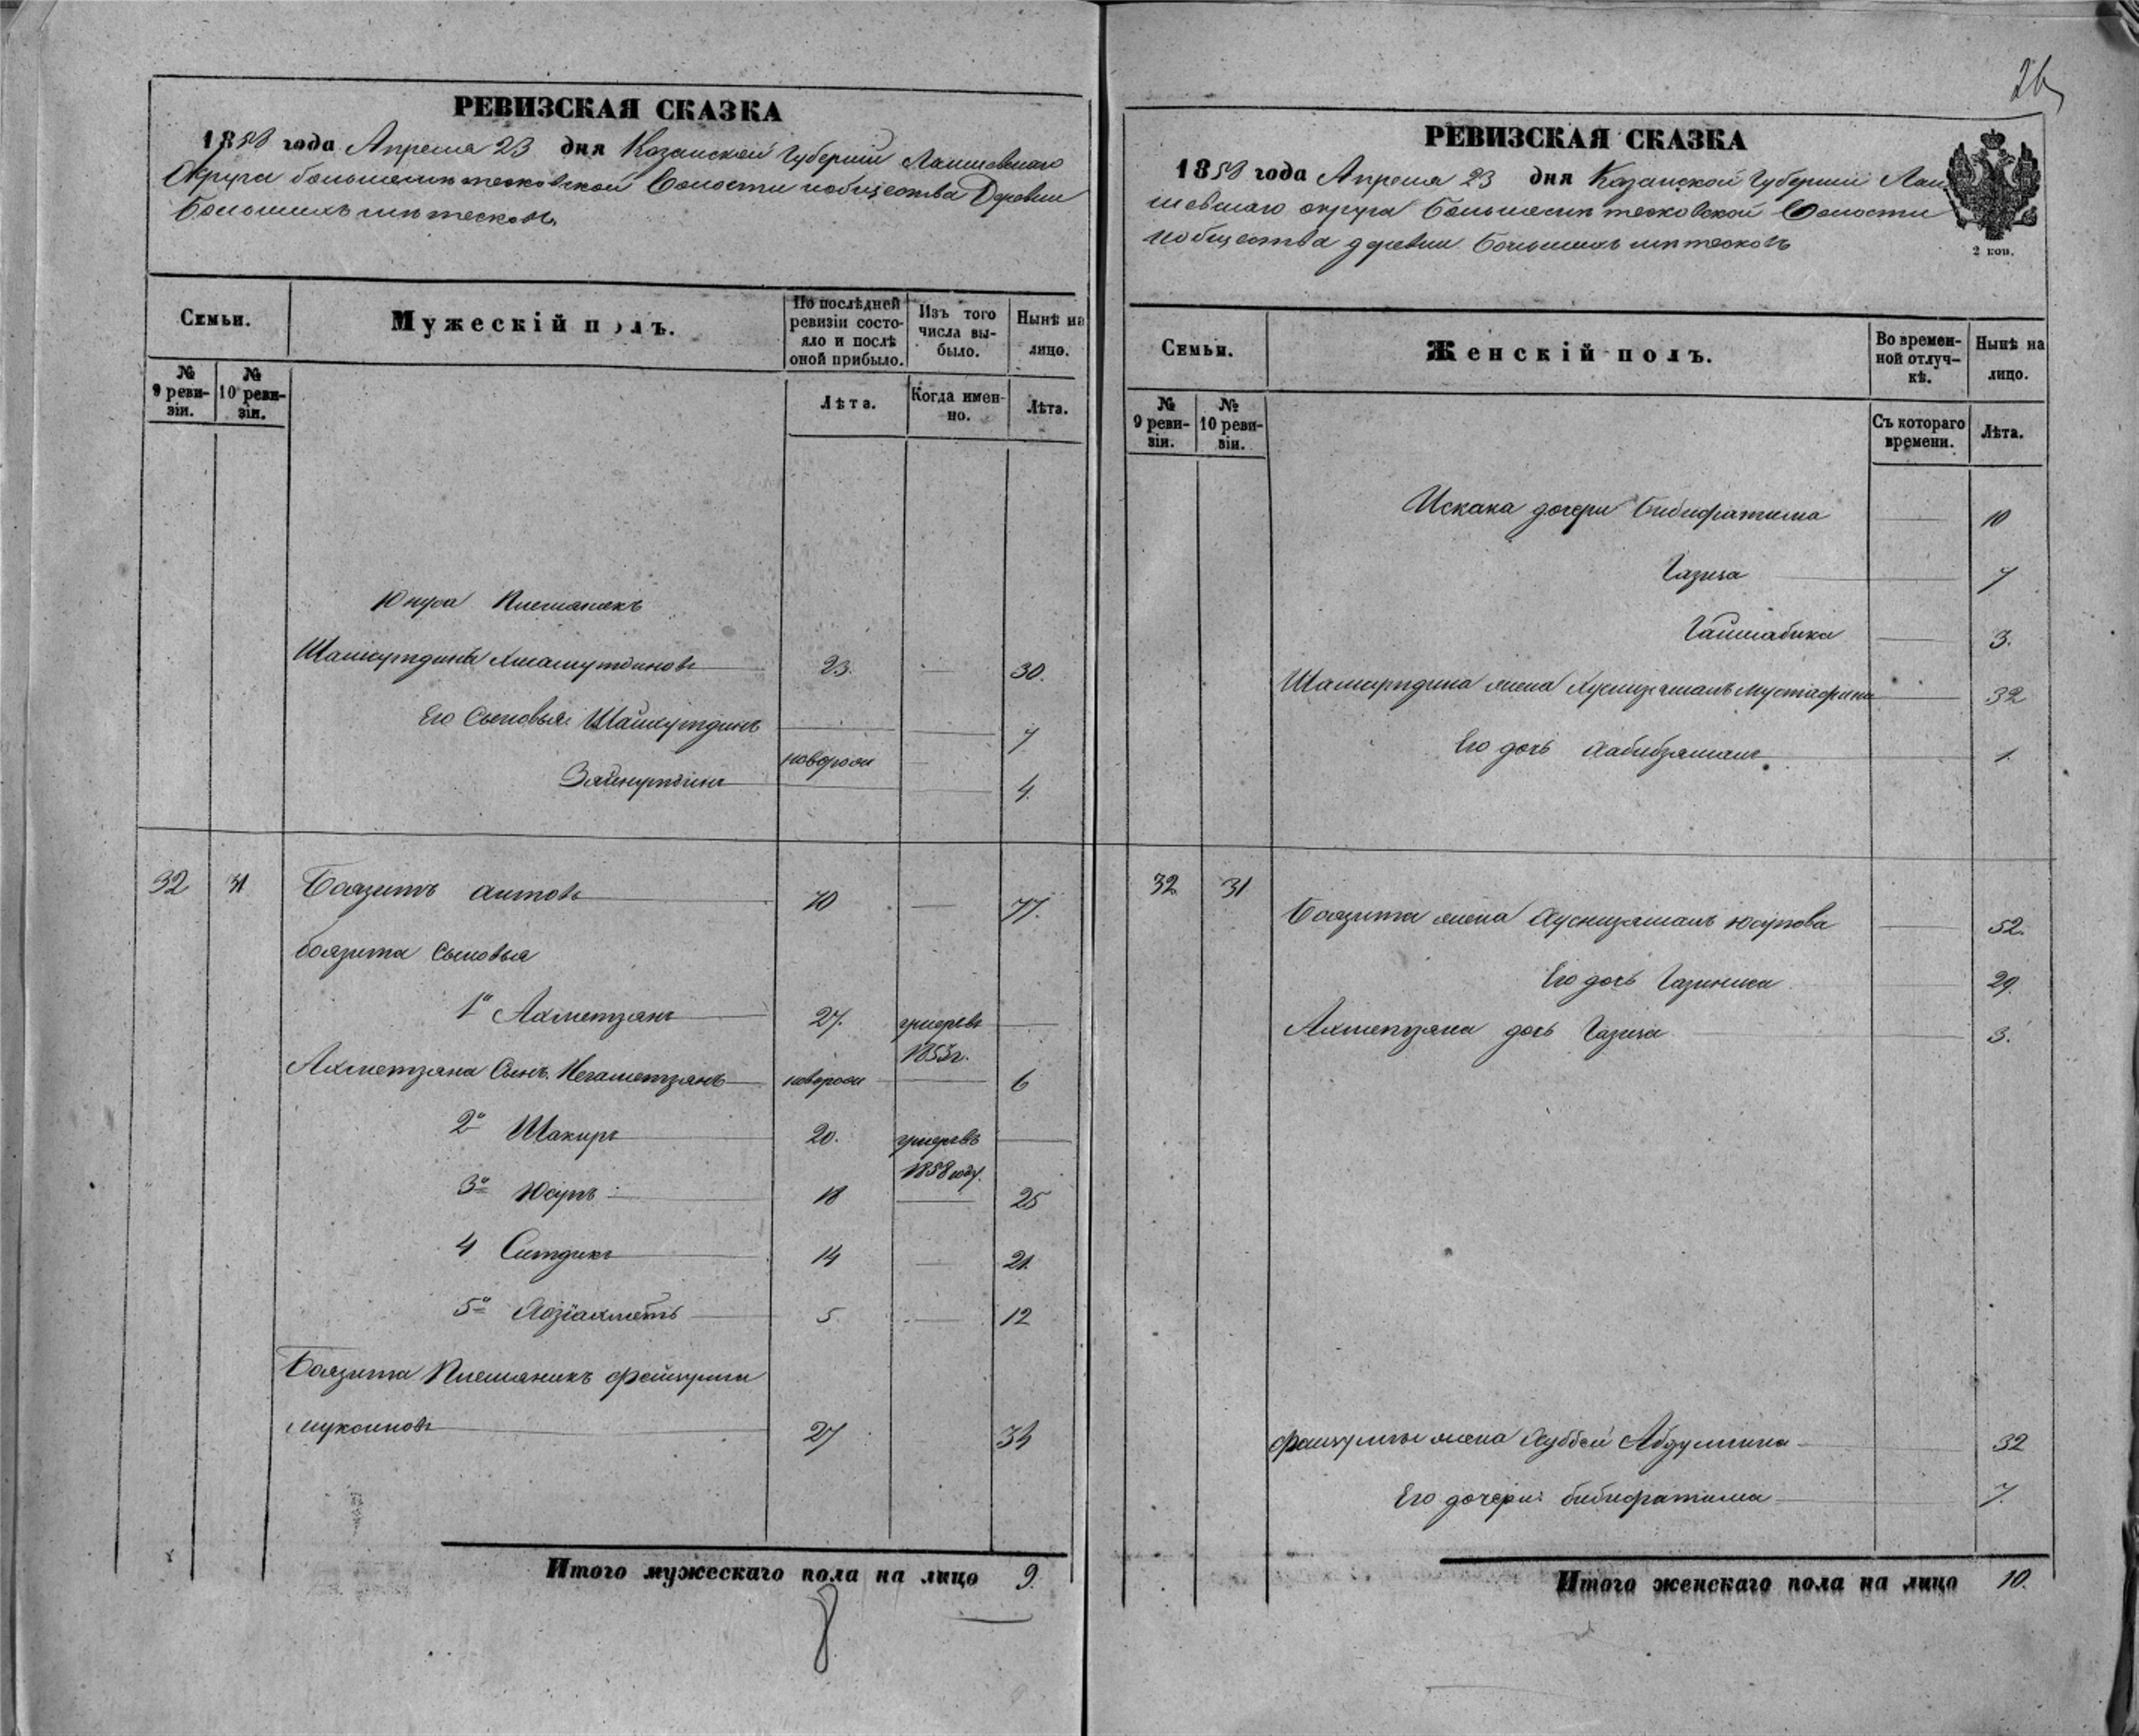 26
РЕВИЗСКАЯ СКАЗКА
1858 года Апреля 23 дня Казанской Губернии Лаишевскаго
Округа большеметесковской Волости и общества Деревни
Большихъ метесковъ
Семьи.
Мужескій полъ.
По послѣдней ревизіи состояло и послѣ оной прибыло.
Изъ того числа выбыло.
Нынѣ на лицо.
№ 9 ревизіи.
№ 10 ревизіи.
Лѣта.
Когда именно.
Лѣта.
Юнуса Племяникъ
Шамсутдинъ Хисамутдиновъ 23. — 30.
Его Сыновья: Шайхутдинъ — — 7
новорож
Зайнутдинъ — — 4.
32 31 Боязитъ Аитовъ 70 — 77.
Боязита Сыновья
1й Ахметзянъ 27. умеръ въ —
1853г.
Ахметзяна Сынъ. Негаметзянъ новорож — 6
2й Шакиръ 20. умеръ въ —
1858 году.
3й Юсупъ 18 — 25
4 Ситдикъ 14 — 21.
5й Хозіахметъ 5 — 12
Боязита Племяникъ файзулла
мукминовъ 27 34
Итого мужескаго пола на лицо 9.
РЕВИЗСКАЯ СКАЗКА
1858 года Апреля 23 дня Казанской Губернии Лаи
шевскаго округа Большеметесковской Волости
и общества деревни Большихъ метесковъ
2 коп.
Семьи.
Женскій полъ.
Во временной отлучкѣ.
Нынѣ на лицо.
№ 9 ревизіи.
№ 10 ревизіи.
Съ котораго времени.
Лѣта.
Искака дочери Бибифатима — 10
Газиза — 7
Гайшабика — 3.
Шамсутдина жена Хуснизямалъ Мустафина — 32
Его дочь Хабибзямалъ — 1.
32 31
Боязита жена Хуснизямалъ Юсупова — 52.
Его дочь Газиниса 29.
Ахметзяна дочь Газиза — 3.
файзуллы жена Хуббей Абдуллина — 32
Его дочери: бибифатима — 7.
Итого женскаго пола на лицо 10.